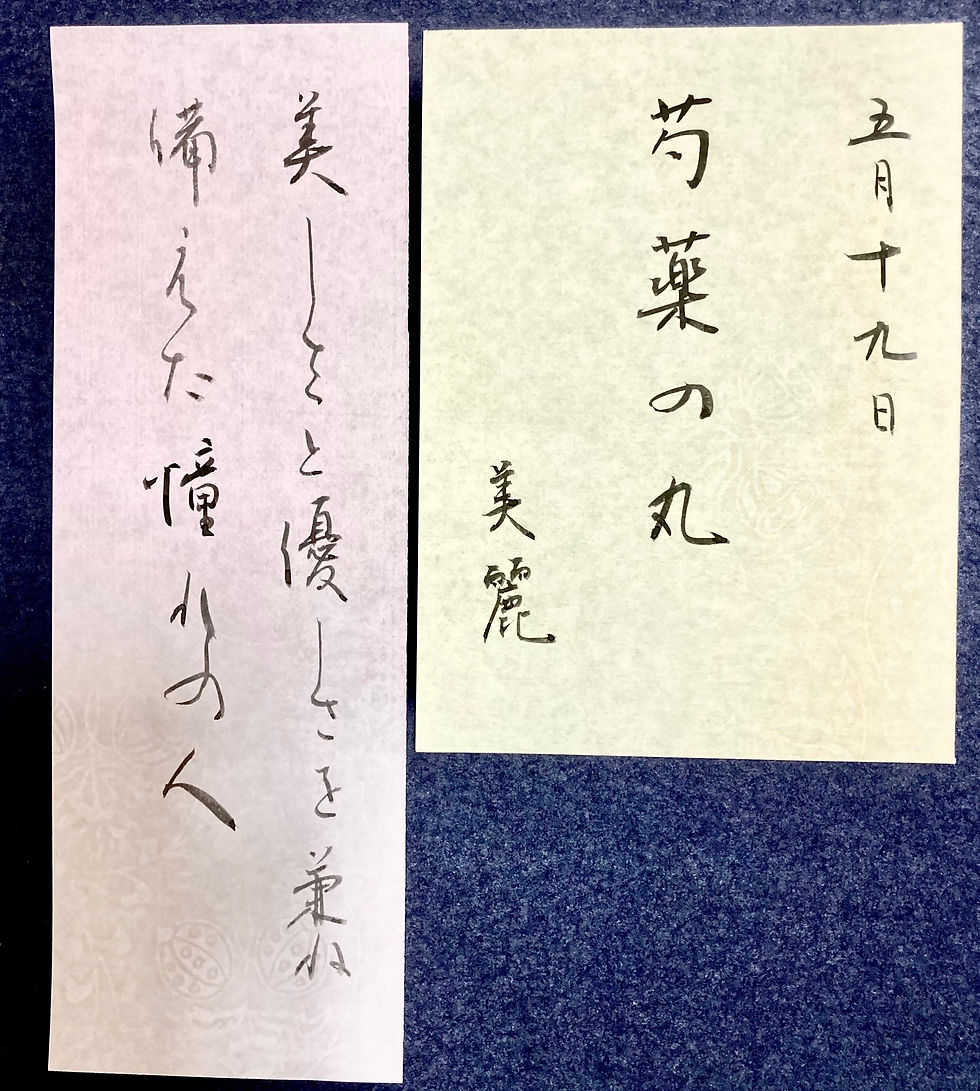 五月十九日
芍薬の丸
美麗
美しさと優しさを兼ね
備えた憧れの人